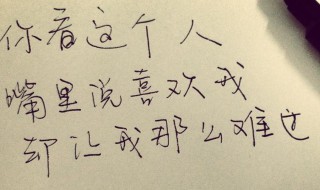 你看这个人
嘴里说喜欢我
却让我那么难过